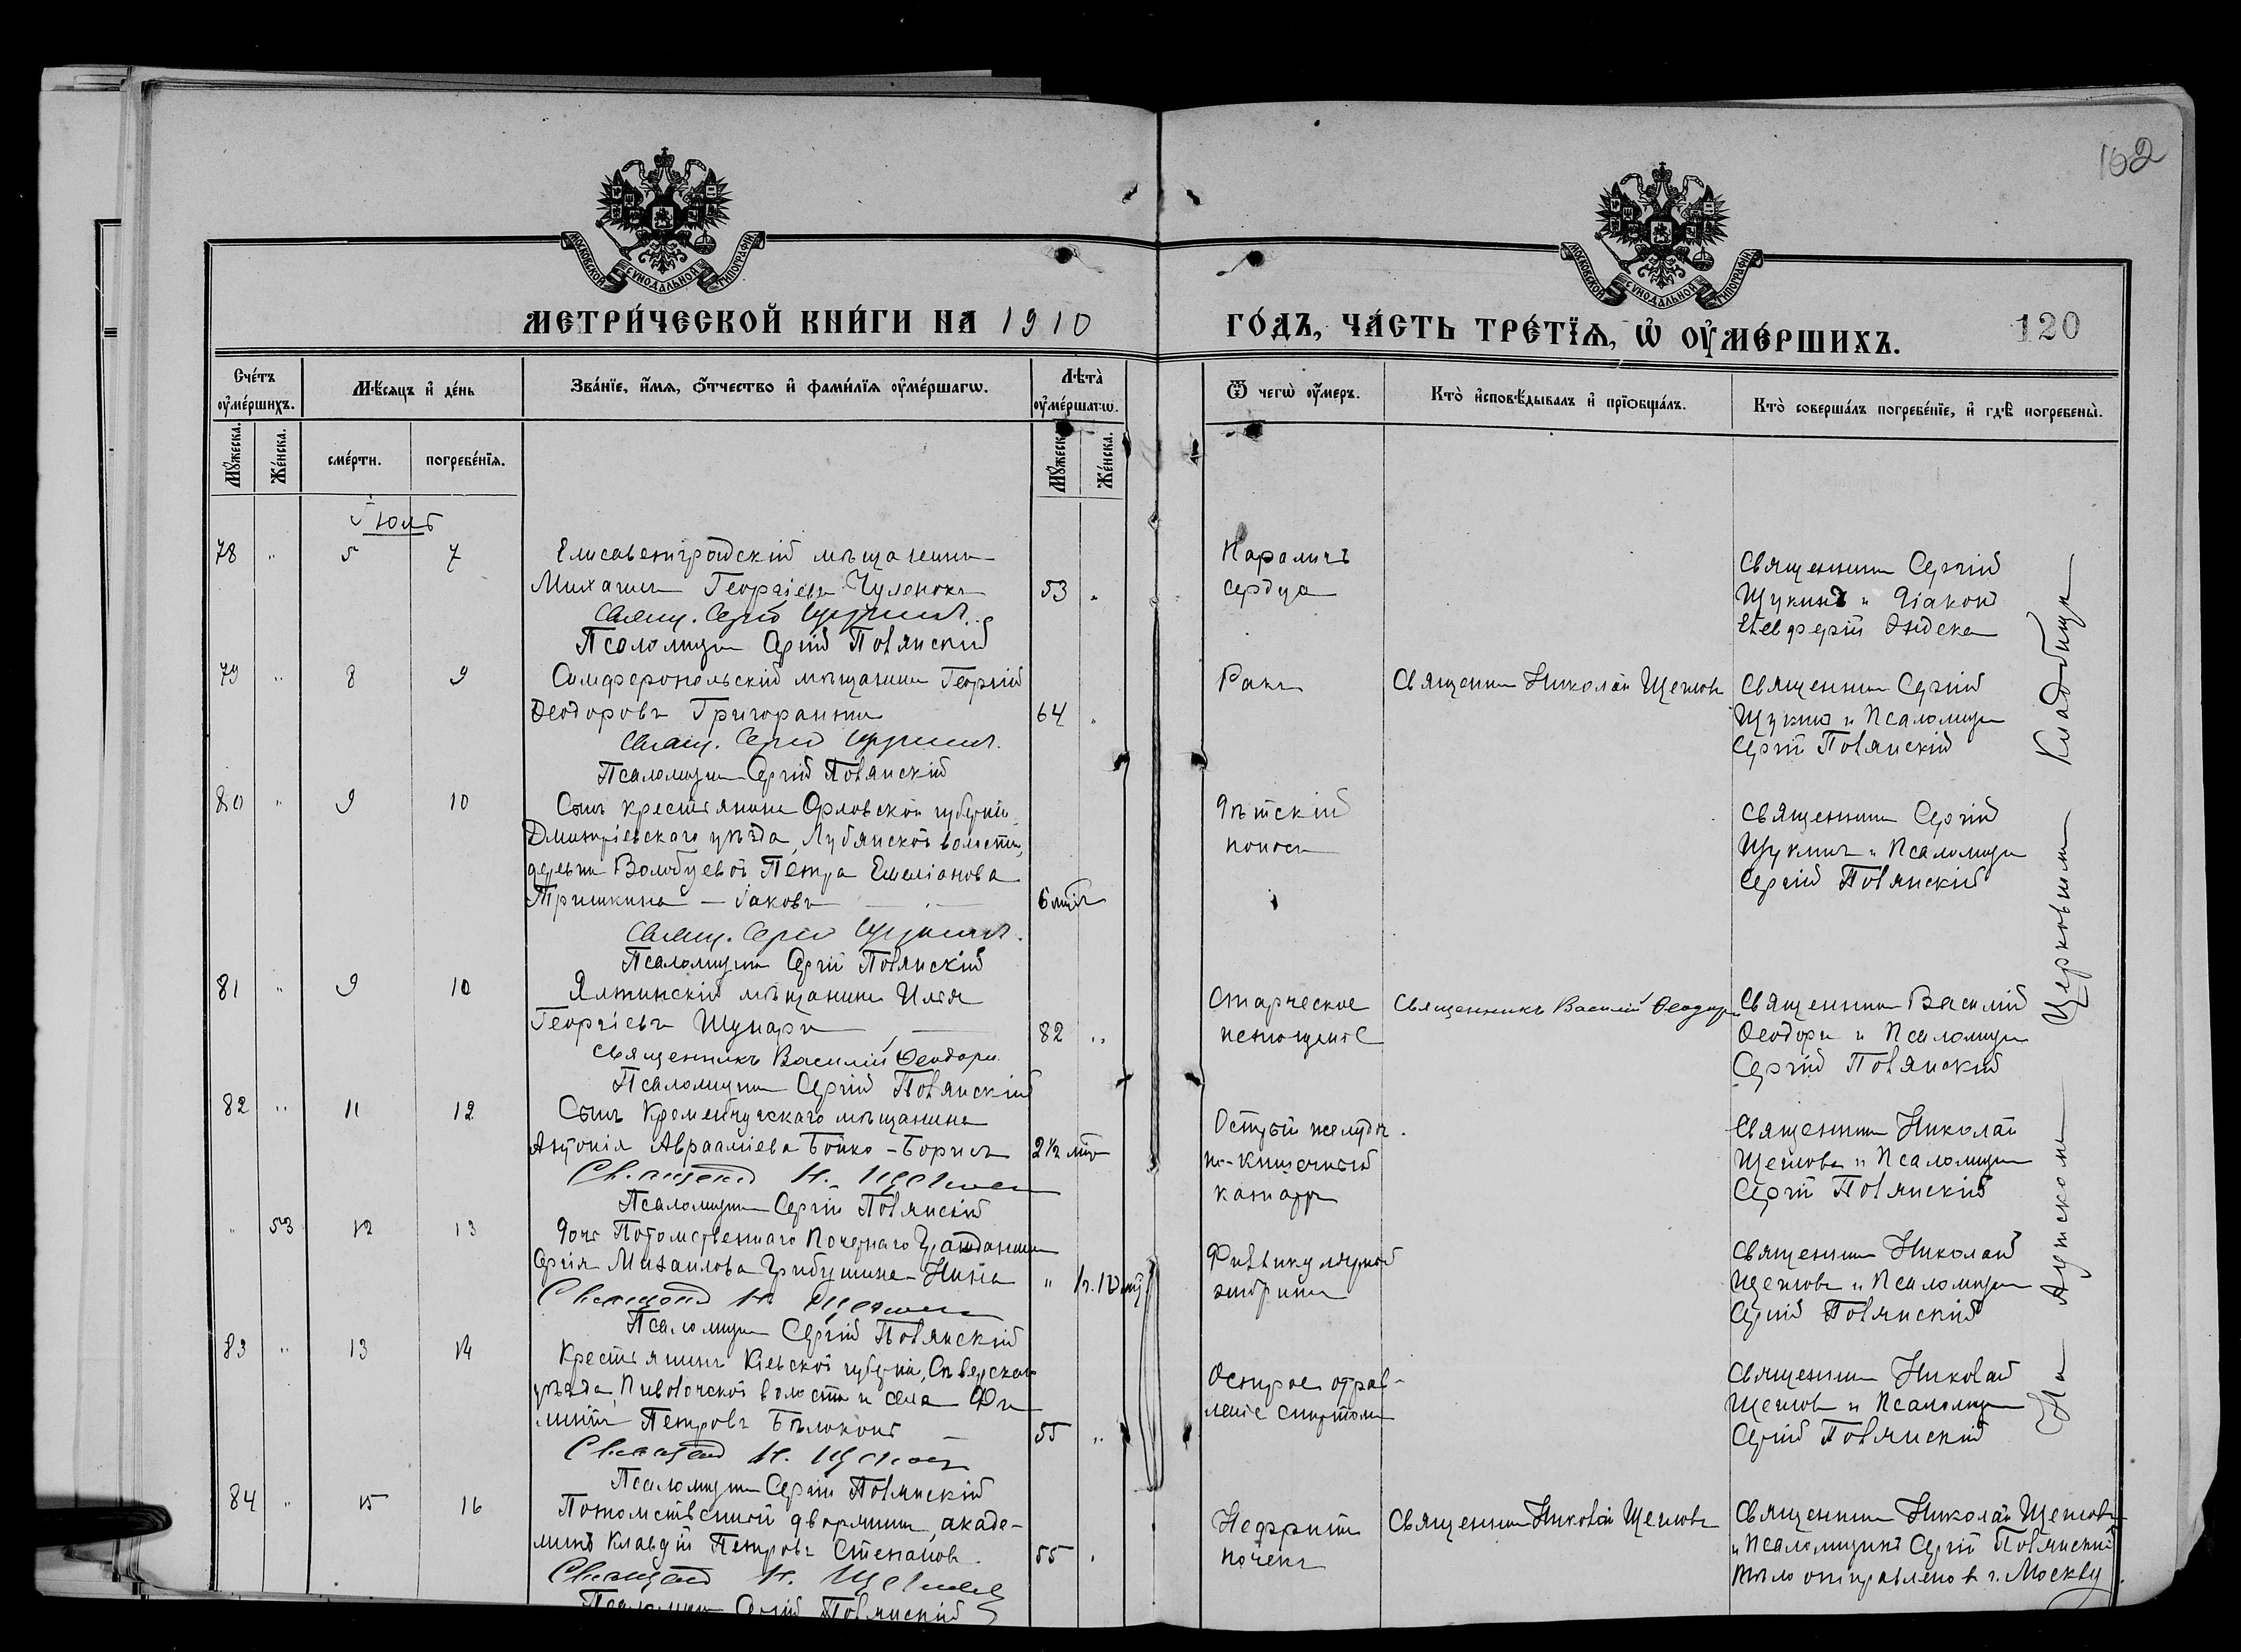 162
МОСКОВСКОЙ СѴНОДАЛЬНОЙ ТИПОГРАФІИ
МОСКОВСКОЙ СѴНОДАЛЬНОЙ ТИПОГРАФІИ
МЕТРИ́ЧЕСКОЙ КНИ́ГИ НА 1910
ГО́ДЪ, ЧА́СТЬ ТРЕ́ТЇѦ, Ѡ҆ ОУ҆МЕ́РШИХЪ.
120
Счетъ оумершихъ.
Мѣсяцъ и день
Званїе, имя, отчество и фамилїя оумершагѡ.
Лѣта оумершагѡ.
Ѿ чегѡ оумеръ.
Кто исповѣдывалъ и прїобщалъ.
Кто совершалъ погребенїе, и гдѣ погребены.
Мужеска.
Женска.
смерти.
погребенїя.
Мужеск
Женска.
Іюль
78 " 5 7
Елисаветградскій мѣщанинъ
Михаилъ Георгіевъ Чуленокъ
53 "
Свящ. Сергій Щукинъ.
Псаломщикъ Сергій Повянскій
Параличъ
сердца
Священникъ Сергій
Щукинъ и Діаконъ
79 " 8 9
Симферопольскій мѣщанинъ Георгій
Ѳеодоровъ
64 "
Свящ. Сергій Щукинъ.
Псаломщикъ Сергій Повянскій
Ракъ
Священникъ Николай Щегловъ
Священникъ Сергій
Щукинъ и Псаломщикъ
Сергій Повянскій
80 " 9 10
Сынъ крестьянина Орловской губерніи,
Дмитріевскаго уѣзда, Лубянской волости,
деревни Волобуевой Петра Емеліанова
Тришкина — Іаковъ
6 мѣс
Свящ. Сергій Щукинъ.
Псаломщикъ Сергій Повянскій
Дѣтскій
поносъ
Священникъ Сергій
Щукинъ и Псаломщикъ
Сергій Повянскій
81 " 9 10
Ялтинскій мѣщанинъ Илья
Георгіевъ
82 "
Священникъ Василій Ѳеодори
Псаломщикъ Сергій Повянскій
Старческое
истощеніе
Священникъ Василій Ѳеодори
Священникъ Василій
Ѳеодори и Псаломщикъ
Сергій Повянскій
82 " 11 12
Сынъ Кременчугскаго мѣщанина
Антонія Аврааміева Бойко - Борисъ
2½ мѣс
Священ Н. Щегловъ
Псаломщикъ Сергій Повянскій
Острый желудоч
но-кишечный
катарръ
Священникъ Николай
Щегловъ и Псаломщикъ
Сергій Повянскій
" 53 12 13
Дочь Потомственнаго Почетнаго Гражданина
Сергія Михаилова Грибушина - Нина
" 1г. 10 мѣ
Священ Н Щегловъ
Псаломщикъ Сергій Повянскій
Фолликулярный
энтеритъ
Священникъ Николай
Щегловъ и Псаломщикъ
Сергій Повянскій
83 " 13 14
Крестьянинъ Кіевской губерніи,
уѣзда, волости и села Фи
липпъ Петровъ Бѣлоконь
55 "
Священ Н. Щегловъ
Псаломщикъ Сергій Повянскій
Острое отрав-
леніе спиртомъ
Священникъ Николай
Щегловъ и Псаломщикъ
Сергій Повянскій
84 " 15 16
Потомственный дворянинъ, акаде-
микъ Клавдій Петровъ Степановъ.
55 "
Священ Н. Щегловъ
Псаломщикъ Сергій Повянскій
Нефритъ
почекъ
Священникъ Николай Щегловъ
Священникъ Николай Щегловъ
и Псаломщикъ Сергій Повянскій
Тѣло отправлено въ г. Москву.
На Аутскомъ Церковномъ Кладбищѣ